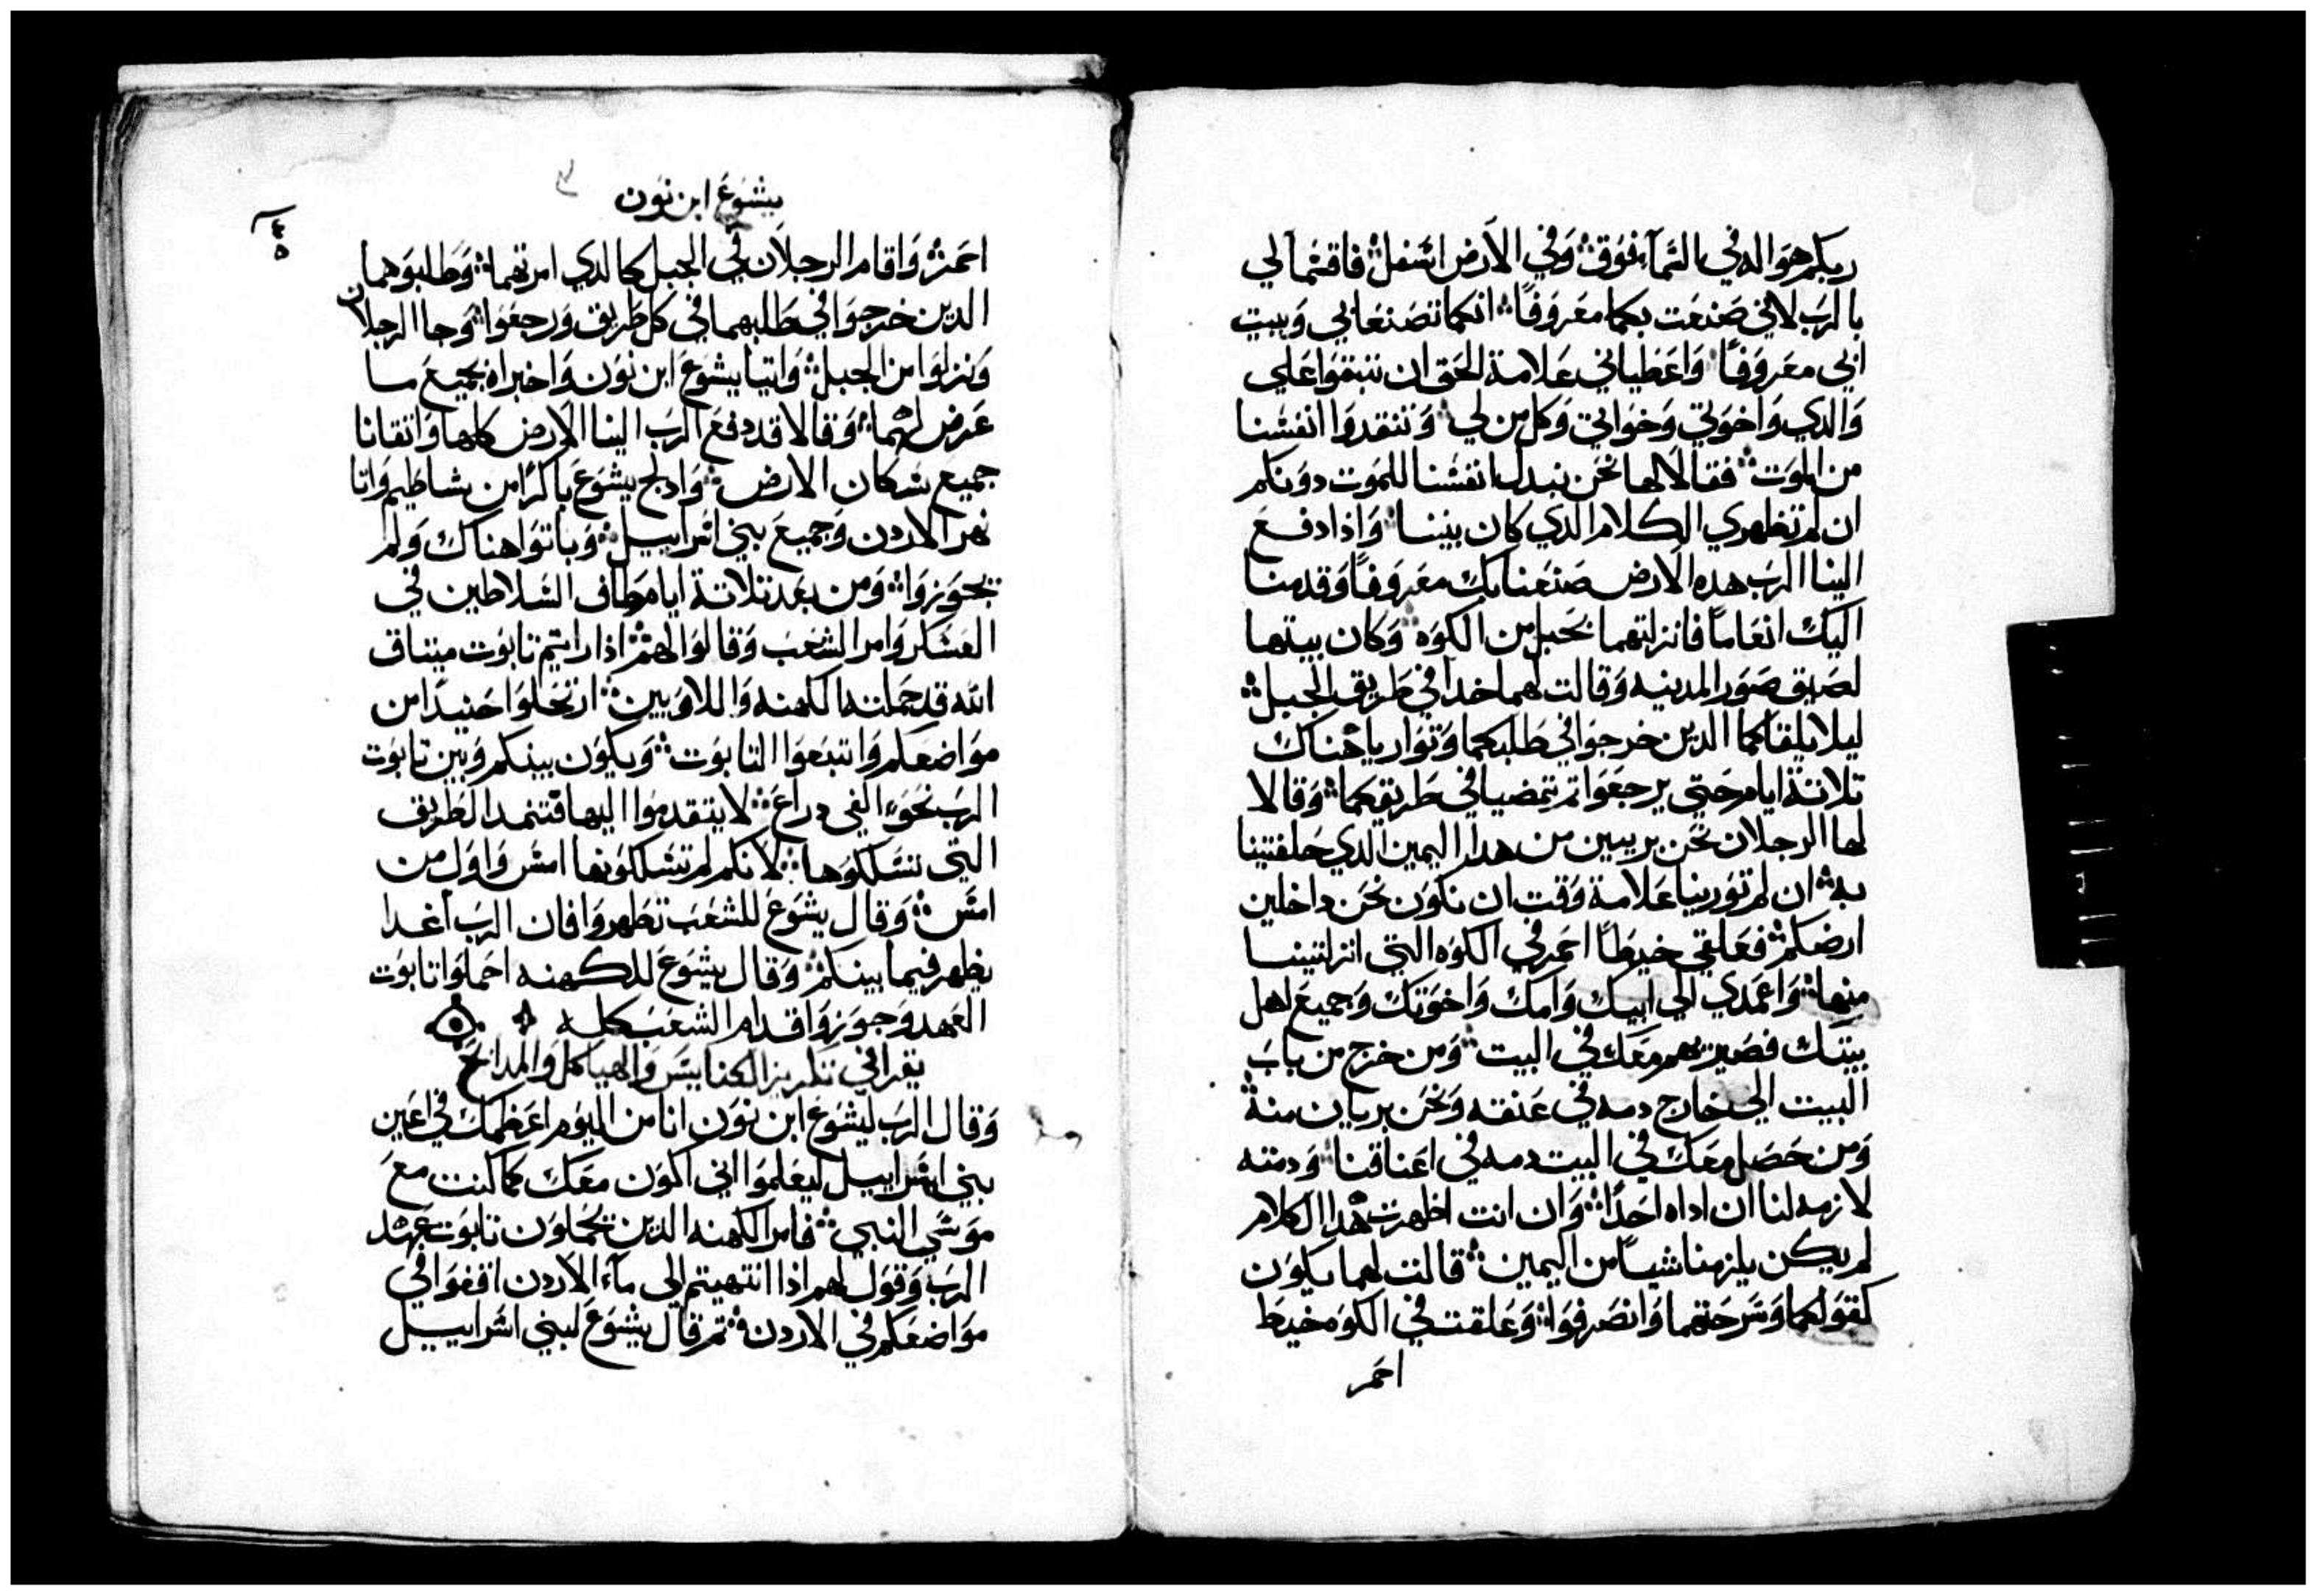 ربكم هو اله في السمآ فوق ۞ وفي الارض اسفل ۞ فاقسما لي
بالرب لاني صنعت بكما معروفًا ۞ انكما تصنعا بي وببيت
ابي معروفًا ۞ واعطياني علامة الحق ان تبقوا علي
والدي واخوتي وخواتي وكل من لي ۞ وتنقدوا انفسنا
من الموت ۞ فقالا لها نحن نبدل انفسنا للموت دونكم
ان لم تظهري الكلام الدي كان بيننا ۞ واذا دفع
الينا الرب هده الارض صنعنا بك معروفًا وقدمنا
اليك انعامًا فانزلتهما بحبل من الكوه ۞ وكان بيتها
لصيق صور المدينه وقالت لهما خدا في طريق الجبل ۞
ليلا يلقاكما الدين خرجوا في طلبكما وتواريا هناك
تلاتة ايام حتي يرجعوا تم تمضيا في طريقكما ۞ وقالا
لها الرجلان نحن بريين من هدا اليمين الدي حلفتينا
به ۞ ان لم تورينا علامة وقت ان نكون نحن داخلين
ارضكم ۞ فعلقي خيطًا احمر في الكوه التي انزلتينا
منها ۞ واعمدي الي ابيك وامك واخوتك وجميع اهل
بيتك فصيريهم معك في البيت ۞ ومن خرج من باب
البيت الي خارج دمه في عنقه ونحن بريان منه ۞
ومن حصل معك في البيت دمه في اعناقنا ۞ ودمته
لازمه لنا ان اداه احدًا ۞ وان انت اظهرت هدا الكلام
لم يكن يلزمنا شيًا من اليمين ۞ قالت لهما يكون
كقولكما وسرحتهما وانصرفوا ۞ وعلقت في الكوه خيط
احمر
يشوع ابن نون
٤٥
احمر ۞ واقام الرجلان في الجبل كالدي امرتهما ۞ وطلبوهما
الدين خرجوا في طلبهما في كل طريق ورجعوا ۞ وجا الرجلان
ونزلوا من الجبل ۞ واتيا يشوع ابن نون واخبراه بجميع ما
عرض لهما ۞ وقالا قد دفع الرب الينا الارض كلها واتقانا
جميع سكان الارض ۞ وادلج يشوع باكرًا من شاطيم واتا
نهر الاردن وجميع بني اسراييل ۞ وباتوا هناك ولم
يجوزوا ۞ ومن بعد تلاتة ايام طاف السلاطين في
العسكر وامر الشعب وقالوا لهم ۞ اذا رايتم تابوت ميتاق
الله قد حملته الكهنه واللاويين ۞ ارتحلوا حنيدًا من
مواضعكم واتبعوا التابوت ۞ ويكون بينكم وبين تابوت
الرب نحو الفي دراع ۞ لا يتقدموا اليها الطريق
التي تسلكوها ۞ لانكم لم تسلكونها امس واول من
امس ۞ وقال يشوع للشعب تطهروا فان الرب اغدا
يظهر فيما بينكم ۞ وقال يشوع للكهنه احملوا تابوت
العهد وجوزوا قدام الشعب كله ۞
يقرا في تكريز الكنايس والهياكل والمدابح
وقال الرب ليشوع ابن نون انا من اليوم اعظمك في اعين
بني اسراييل ليعلموا اني اكون معك كما كنت مع
موسي النبي ۞ فامر الكهنه الدين يحملون تابوت عهد
الرب وقول لهم اذا انتهيتم الي مآء الاردن اقفوا في
مواضعكم في الاردن ۞ تم قال يشوع لبني اسراييل